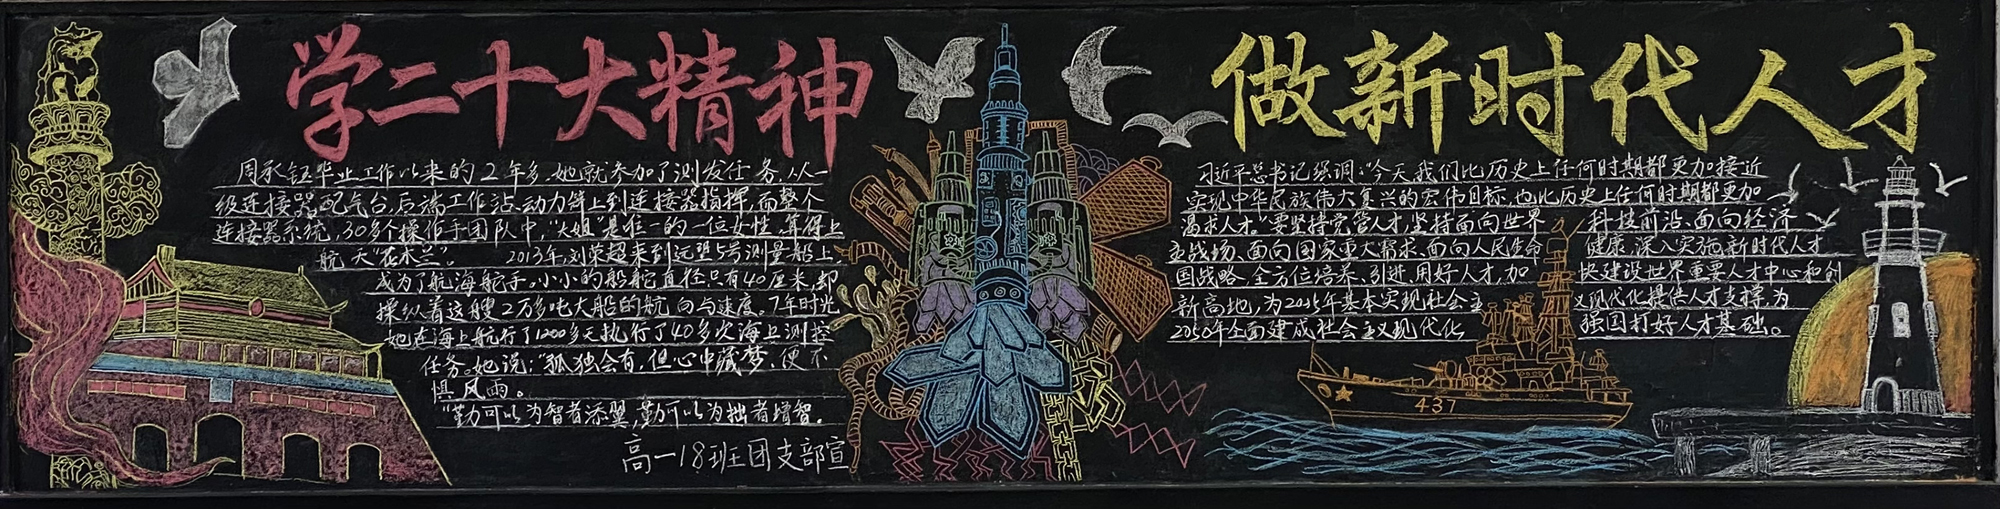 学二十大精神
周承钰毕业工作以来的2年多,她就参加了测发任务,从一
级连接器配气台、后端工作站、动力链上到连接器指挥,而整个
连接器系统,30多个操作手团队中,"大姐"是唯一的一位女性,算得上
航天"花木兰"。 2013年,刘荣超来到远望5号测量船上,
成为了航海舵手。小小的船舵直径只有40厘米,却
操纵着这艘2万多吨大船的航向与速度。7年时光
她在海上航行了1200多天执行了40多次海上测控
任务。她说:"孤独会有,但心中藏梦,便不
惧风雨。
"勤可以为智者添翼,勤可以为拙者增智。
高一18班团支部宣
做新时代人才
习近平总书记强调:"今天,我们比历史上任何时期都更加接近
实现中华民族伟大复兴的宏伟目标,也比历史上任何时期都更加
渴求人才。"要坚持党管人才,坚持面向世界科技前沿、面向经济
主战场、面向国家重大需求、面向人民生命健康,深入实施新时代人才
国战略,全方位培养、引进、用好人才,加快建设世界重要人才中心和创
新高地,为2035年基本实现社会主义现代化提供人才支撑,为
2050年全面建成社会主义现代化强国打好人才基础。
437